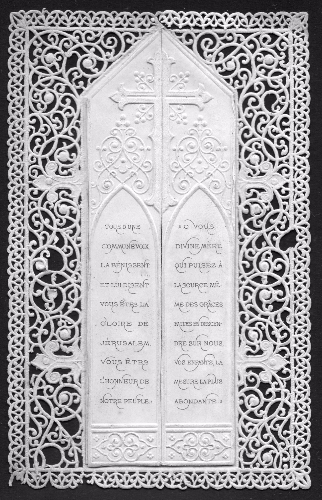 TOUS D'UNE
COMMUNE VOIX
LA BÉNISSENT
ET LUI DISENT
VOUS ÊTES LA
GLOIRE DE
JÉRUSALEM,
VOUS ÊTES
L'HONNEUR DE
NOTRE PEUPLE.
O VOUS
DIVINE MÈRE,
QUI PUISEZ À
LA SOURCE MÊ-
ME DES GRÂCES
FAITES EN DESCEN-
DRE SUR NOUS
VOS ENFANTS, LA
MESURE LA PLUS
ABONDANTE.